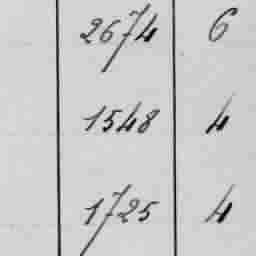 2674 6
1548 4
1725 4